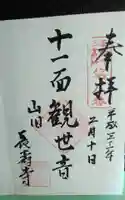 奉拝
平成三十一年
二月十日
十一面観世音
山田
長寿寺